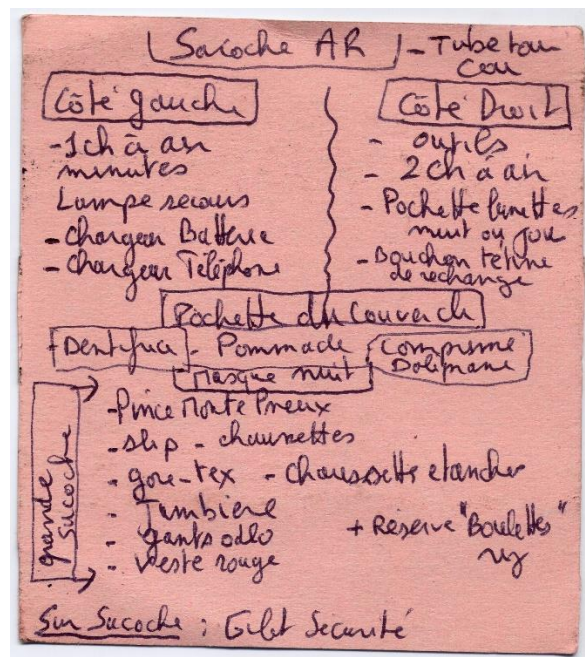 Sacoche AR - Tube tour
Cou
Côté gauche
- 1 ch à air
minutes
Lampe secours
- Chargeur Batterie
- Chargeur Téléphone
Côté Droit
- outils
- 2 ch à air
- Pochette lunettes
nuit ou jour
- Bouchon tétine
de rechange
Pochette du Couvercle
+ Dentifrice - Pommade comprimé
Doliprane
Masque nuit
grande
Sacoche
- Pince Monte Pneux
- slip - chaussettes
- gore-tex - Chaussette etanches
- Jambiere
- gants odlo + Réserve "Boulettes"
- Veste rouge riz
Sur Sacoche : Gilet Sécurité